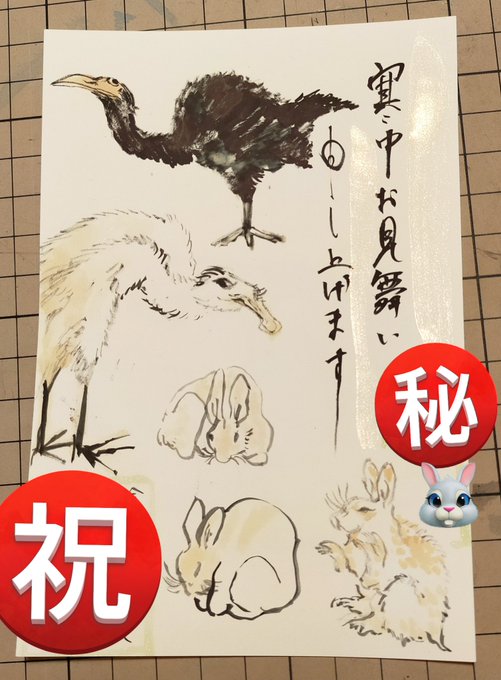 寒中お見舞い
申し上げます
秘
祝